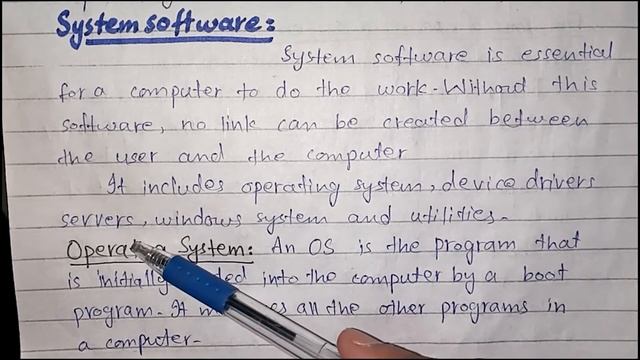 System software:
System software is essential
for a computer to do the work. Without this
software, no link can be created between
the user and the computer
It includes operating system, device drivers
servers, windows system and utilities.
System: An OS is the program that
is initially into the computer by a boot
program. It all the other programs in
a computer.